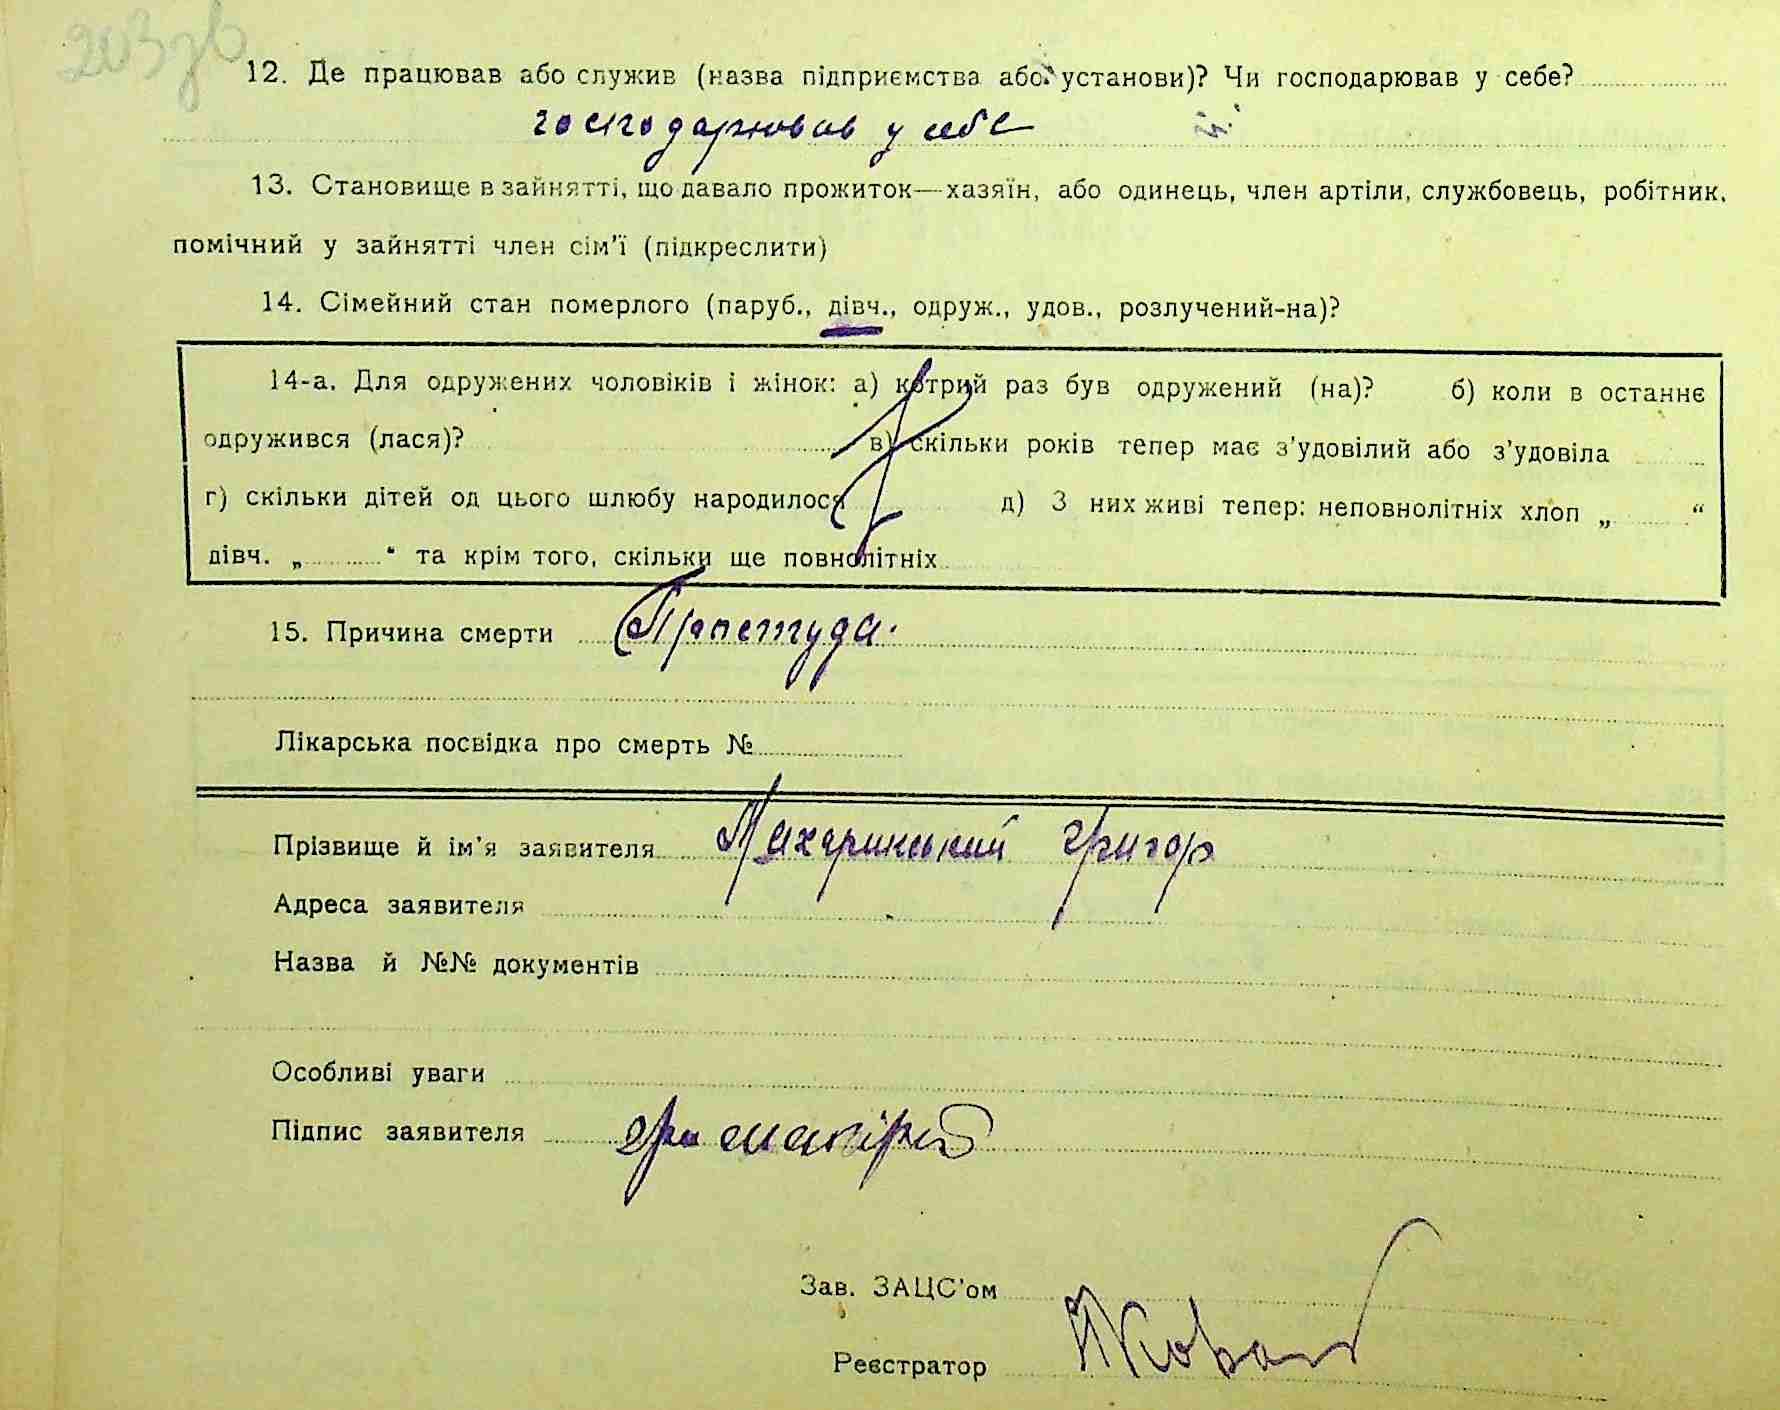 203 зв
12. Де працював або служив (назва підприємства або установи)? Чи господарював у себе?
господарював у себе
13. Становище в зайнятті, що давало прожиток—хазяїн, або одинець, член артіли, службовець, робітник,
помічний у зайнятті член сім'ї (підкреслити)
14. Сімейний стан померлого (паруб., дівч., одруж., удов., розлучений-на)?
14-а. Для одружених чоловіків і жінок: а) котрий раз був одружений (на)? б) коли в останнє
одружився (лася)? в) скільки років тепер має з'удовілий або з'удовіла
г) скільки дітей од цього шлюбу народилося д) З них живі тепер: неповнолітніх хлоп „ “
дівч. „ “ та крім того, скільки ще повнолітніх
15. Причина смерти Простуда.
Лікарська посвідка про смерть №
Прізвище й ім'я заявителя Махаринський Григор
Адреса заявителя
Назва й №№ документів
Особливі уваги
Підпис заявителя
Зав. ЗАЦС'ом
Реєстратор